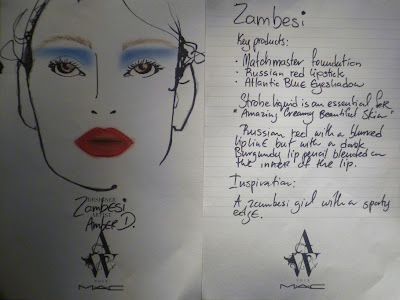 DESIGNER
Zambesi
ARTIST
Amber D.
AW
MAC
Zambesi
Key products:
• Matchmaster foundation
• Russian red lipstick
• Atlantic Blue Eyeshadow
Strobe liquid is an essential for
"Amazing Creamy Beautiful Skin"
Russian red with a blurred
lipline but with a dark
Burgundy lip pencil blended on
the inner of the lip.
Inspiration:
A zambesi girl with a sporty
edge.
AW
MAC